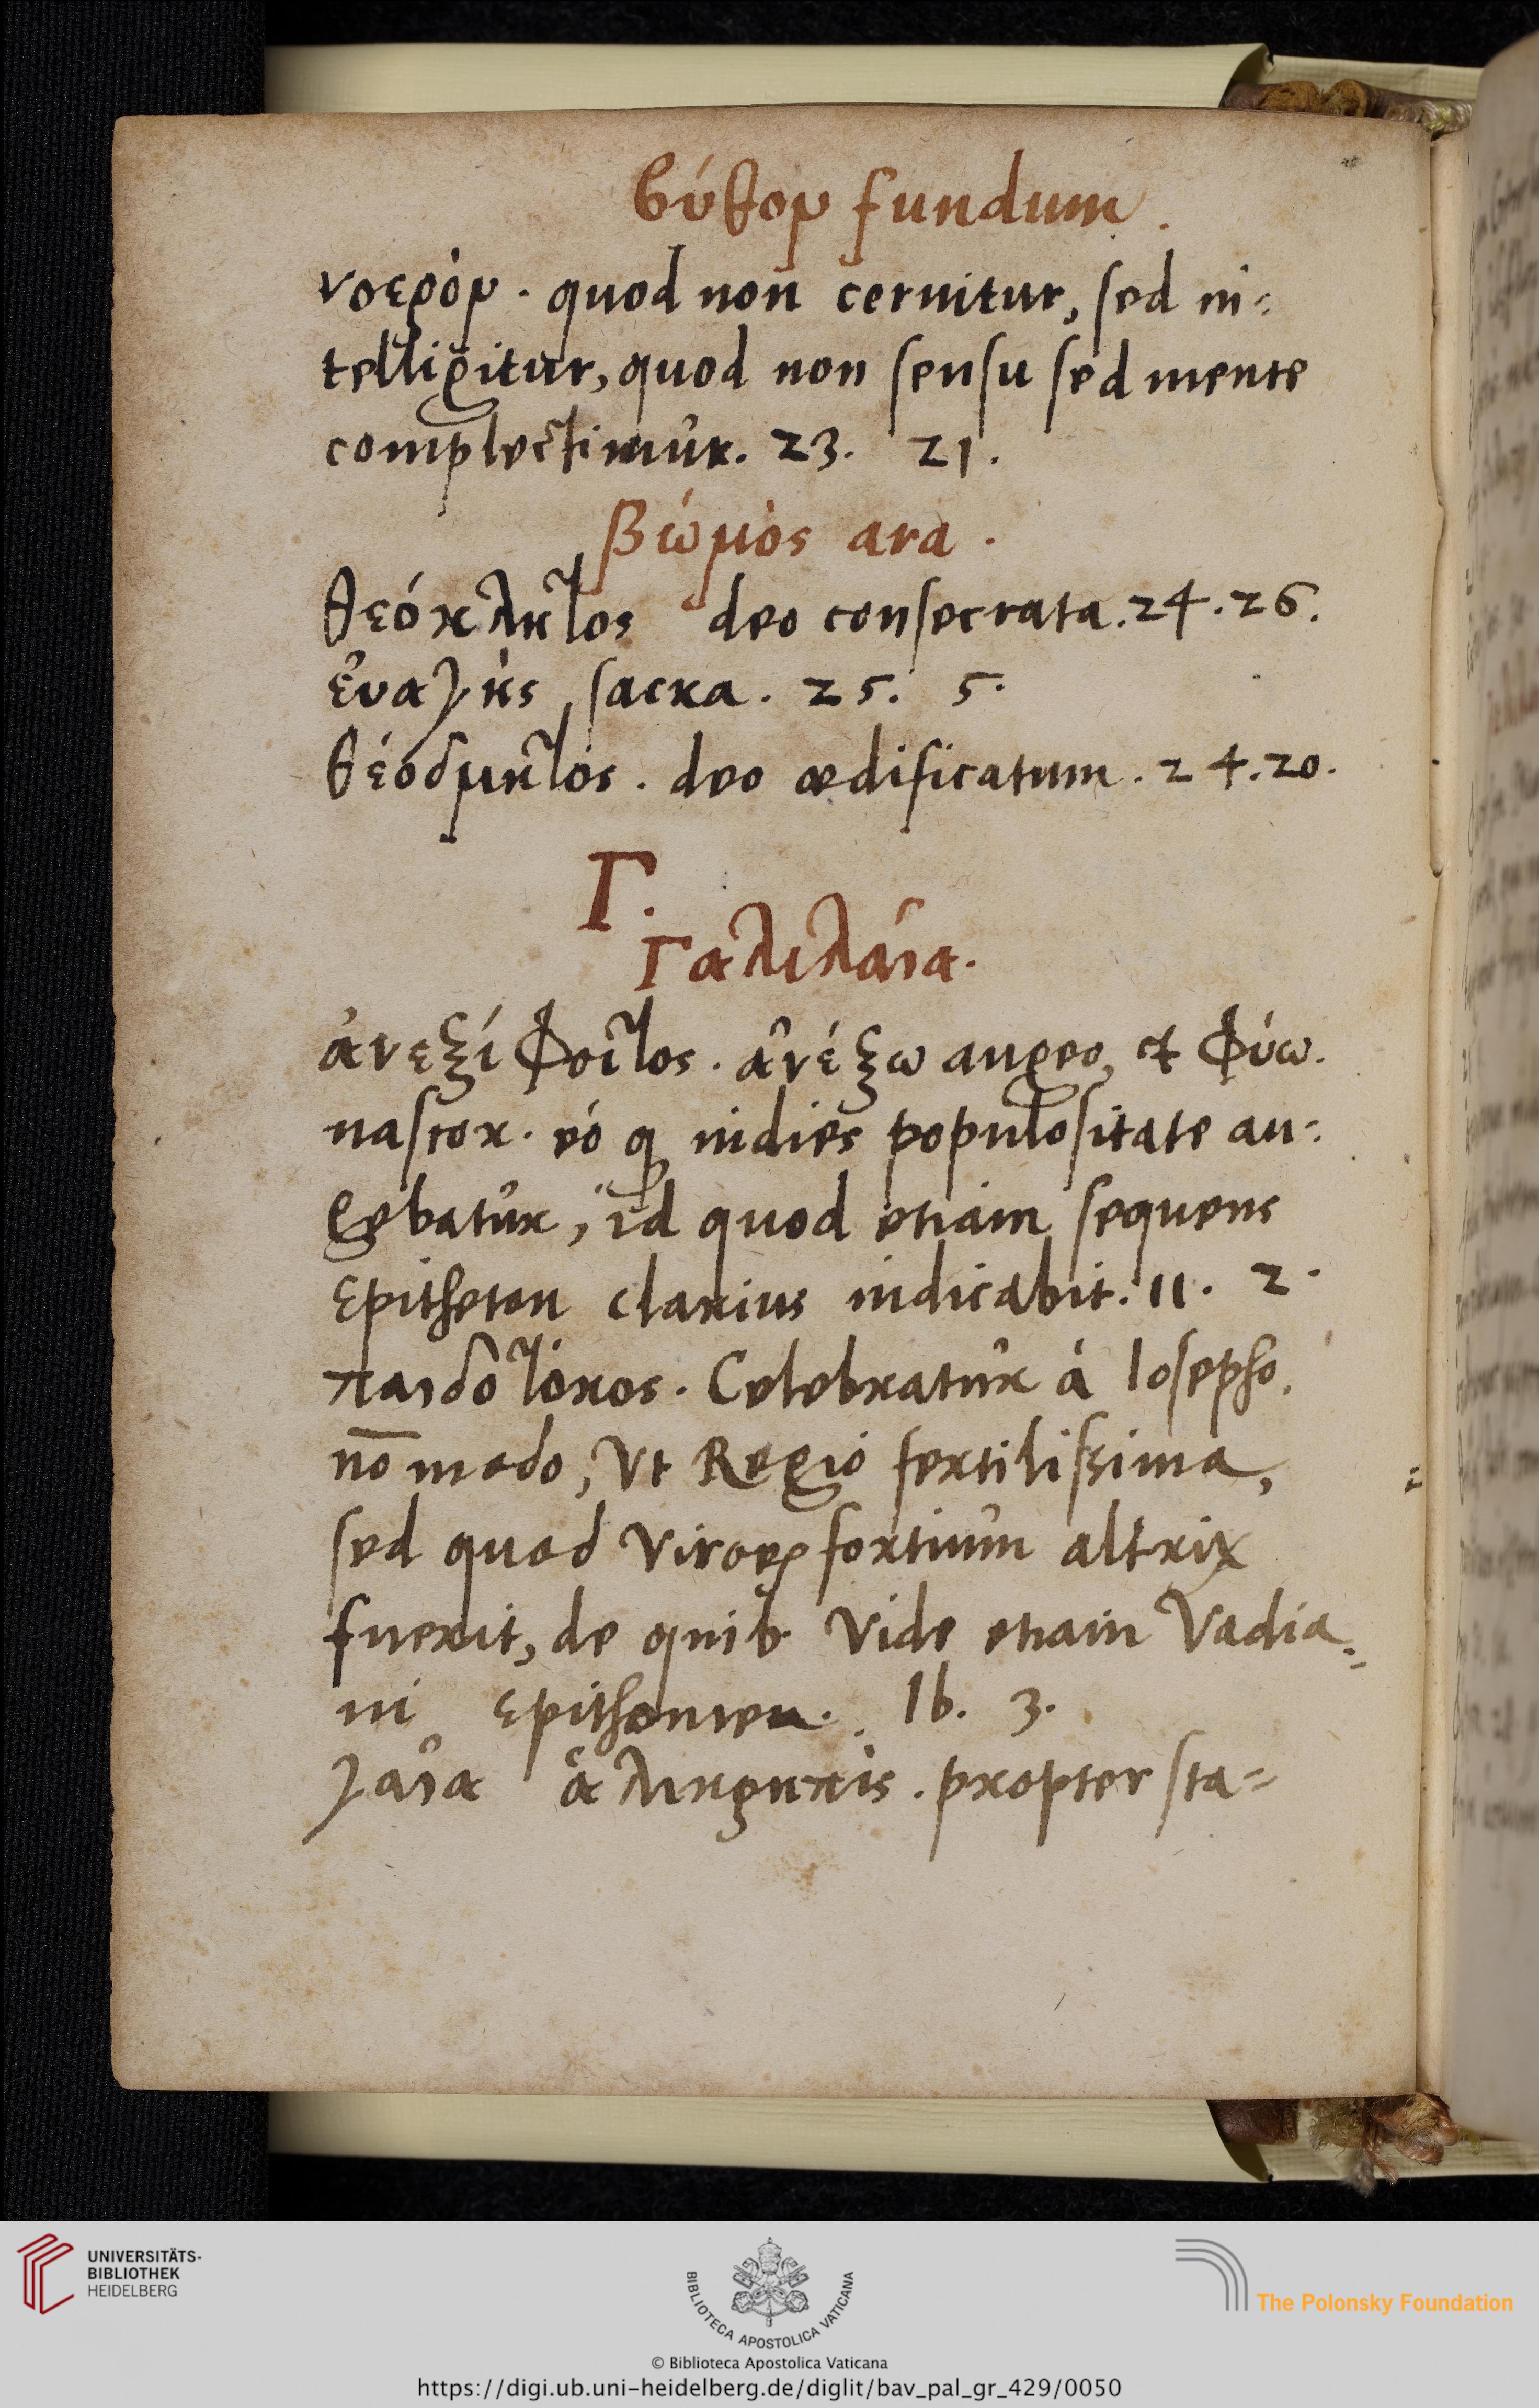 βύθον fundum.
νοερὸν. quod non cernitur, sed in-
telligitur, quod non sensu sed mente
complectimur. 23. 21.
βώμὸς ara.
θεόκλητος deo consecrata. 24. 26.
ἐυαγὴς sacra. 25. 5.
θέόδμητὸς. deo ædificatum. 24. 20.
Γ.
Γαλιλάια.
ἀνεξίφοιτος. ἀνέξω augeo, et φύω.
nascor. eó qꝫ indies populositate au-
gebatur, id quod etiam sequens
Epitheton clarius indicabit. 11. 2.
παιδοτόκος. Celebratur à Iosepho.
nō modo, Vt Regio fertilissima,
sed quod Viroꝝ fortium altrix
fuerit, de quib. Vide etiam Vadia-
ni Epithomen. Ib. 3.
γᾶια propter sta-
UNIVERSITÄTS-
BIBLIOTHEK
HEIDELBERG
BIBLIOTECA APOSTOLICA VATICANA
The Polonsky Foundation
© Biblioteca Apostolica Vaticana
https://digi.ub.uni-heidelberg.de/diglit/bav_pal_gr_429/0050